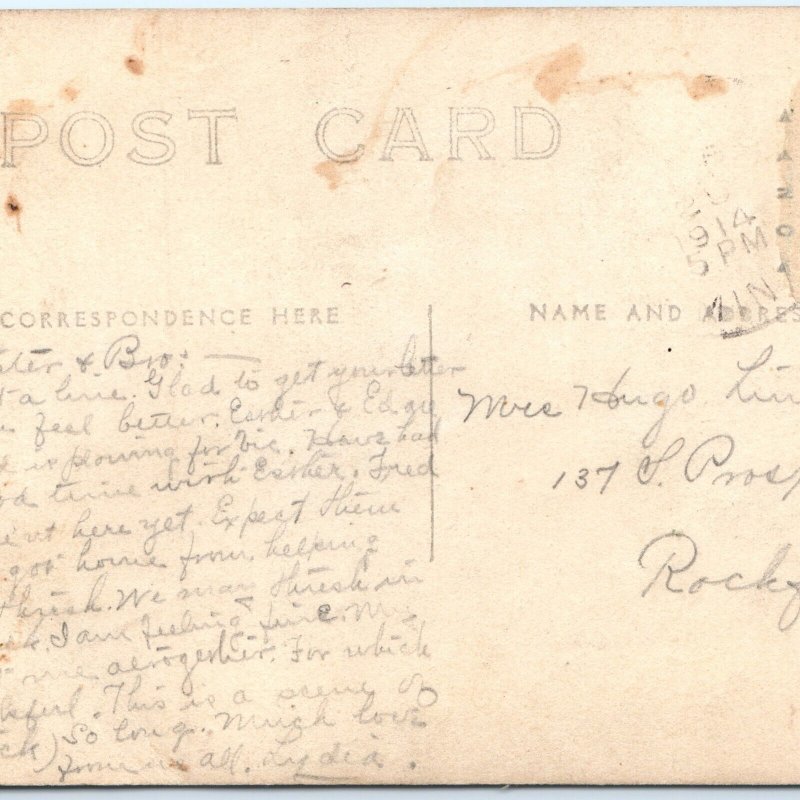 POST CARD
20
1914
5 PM
CORRESPONDENCE HERE
NAME AND ADDRES
& Bro:
a line. Glad to get your letter
feel better. Esther & Edgar
is plowing for Vic. Have had
time with Esther. Fred
here yet. Expect them
got home from helping
thresh. We may thresh in
I am feeling fine. My
me altogether. For which
This is a scene of
So long. Much love
from us all. Lydia.
Mrs Hugo Lin
137 S. Prosp
Rockf